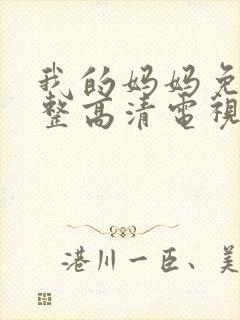 我的妈妈免
整高清电視
港川一臣、美